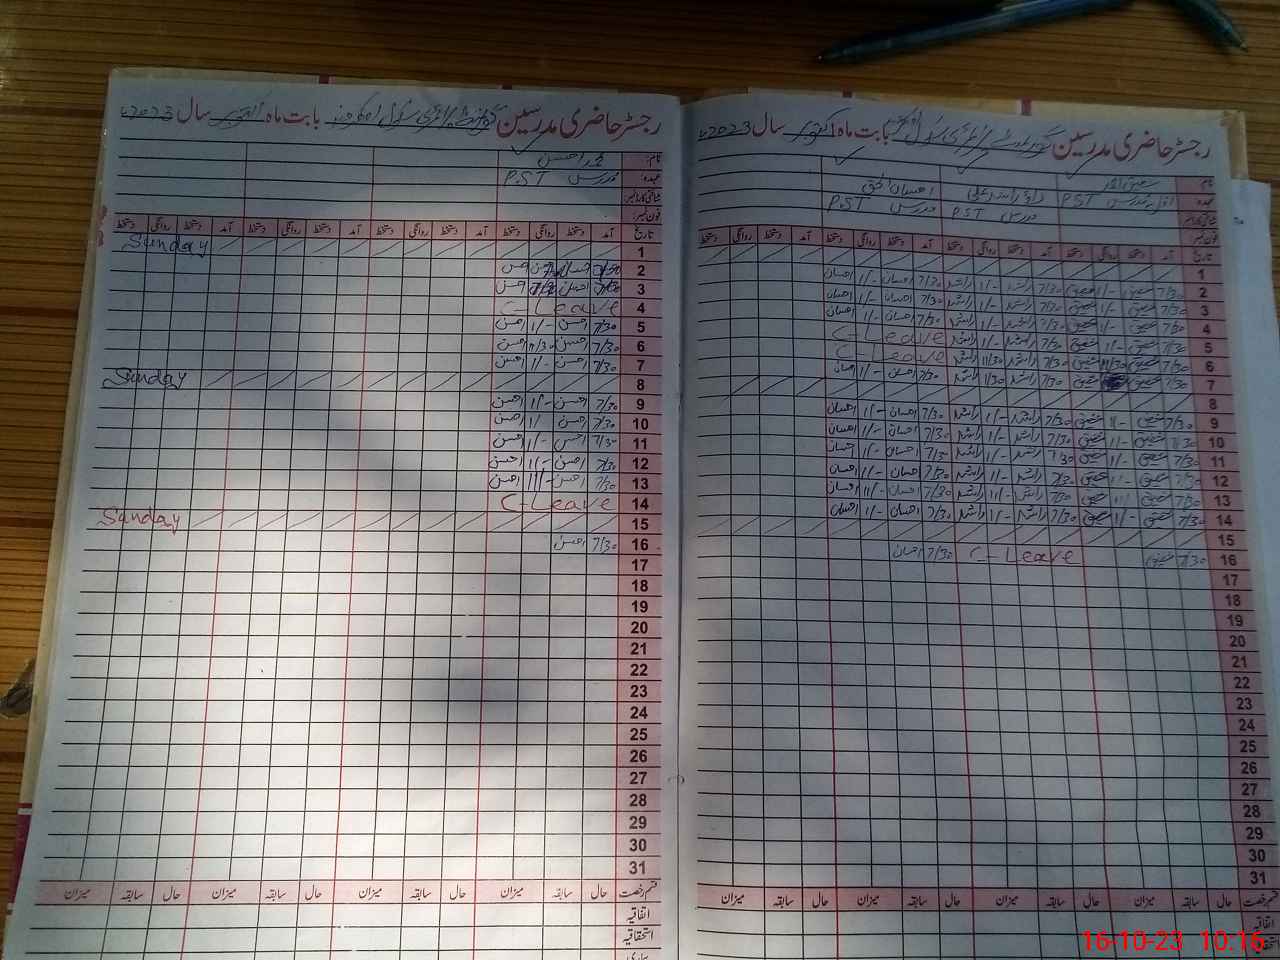 رجسٹر حاضری مدرسین گورنمنٹ پرائمری سکول بابت ماہ اکتوبر سال 2023ء
نام
عہدہ مدرس P.S.T
شناختی کارڈ نمبر
فون نمبر
تاریخ آمد دستخط روانگی دستخط آمد دستخط روانگی دستخط آمد دستخط روانگی دستخط آمد دستخط روانگی دستخط
1 Sunday
2 7/30 احسن
3 7/30 احسن احسن
4 C-Leave
5 7/30 احسن 1/- احسن
6 7/30 احسن 11/30 احسن
7 7/30 احسن 1/- احسن
8 Sunday
9 7/30 احسن 1/- احسن
10 7/30 احسن 1/ احسن
11 7/30 احسن 1/- احسن
12 7/30 احسن 1/- احسن
13 7/30 احسن 11/- احسن
14 C-Leave
15 Sunday
16 7/30 احسن
17
18
19
20
21
22
23
24
25
26
27
28
29
30
31
قسم رخصت حال سابقہ میزان حال سابقہ میزان حال سابقہ میزان حال سابقہ میزان
اتفاقیہ
استحقاقیہ
بیماری
رجسٹر حاضری مدرسین گورنمنٹ پرائمری سکول بابت ماہ اکتوبر سال 2023ء
نام احسان الحق
عہدہ مدرس P.S.T مدرس P.S.T مدرس P.S.T
شناختی کارڈ نمبر
فون نمبر
تاریخ آمد دستخط روانگی دستخط آمد دستخط روانگی دستخط آمد دستخط روانگی دستخط آمد دستخط روانگی دستخط
1
2 7/30 شفیق 1/- شفیق 7/30 راشد 1/- راشد 7/30 احسان 1/- احسان
3 7/30 شفیق 1/- شفیق 7/30 راشد 1/- راشد 7/30 احسان 1/- احسان
4 7/30 شفیق 1/- شفیق 7/30 راشد 1/- راشد 7/30 احسان 1/- احسان
5 7/30 شفیق 1/- شفیق 7/30 راشد 1/- راشد C-Leave
6 7/30 شفیق 11/30 شفیق 7/30 راشد 11/30 راشد C-Leave
7 7/30 شفیق شفیق 7/30 راشد 1/30 راشد 7/30 احسان 1/- احسان
8
9 7/30 شفیق 1/- شفیق 7/30 راشد 1/- راشد 7/30 احسان 1/- احسان
10 7/30 شفیق 1/- شفیق 7/30 راشد 1/- راشد 7/30 احسان 1/- احسان
11 7/30 شفیق 1/- شفیق 7/30 راشد 1/- راشد 7/30 احسان 1/- احسان
12 7/30 شفیق 1/- شفیق 7/30 راشد 1/- راشد 7/30 احسان 1/- احسان
13 7/30 شفیق 11/ شفیق 7/30 راشد 11/- راشد 7/30 احسان 11/- احسان
14 7/30 شفیق 1/- شفیق 7/30 راشد 1/- راشد 7/30 احسان 1/- احسان
15
16 7/30 شفیق C-Leave 7/30 احسان
17
18
19
20
21
22
23
24
25
26
27
28
29
30
31
قسم رخصت حال سابقہ میزان حال سابقہ میزان حال سابقہ میزان حال سابقہ میزان
اتفاقیہ
استحقاقیہ
16-10-23 10:16